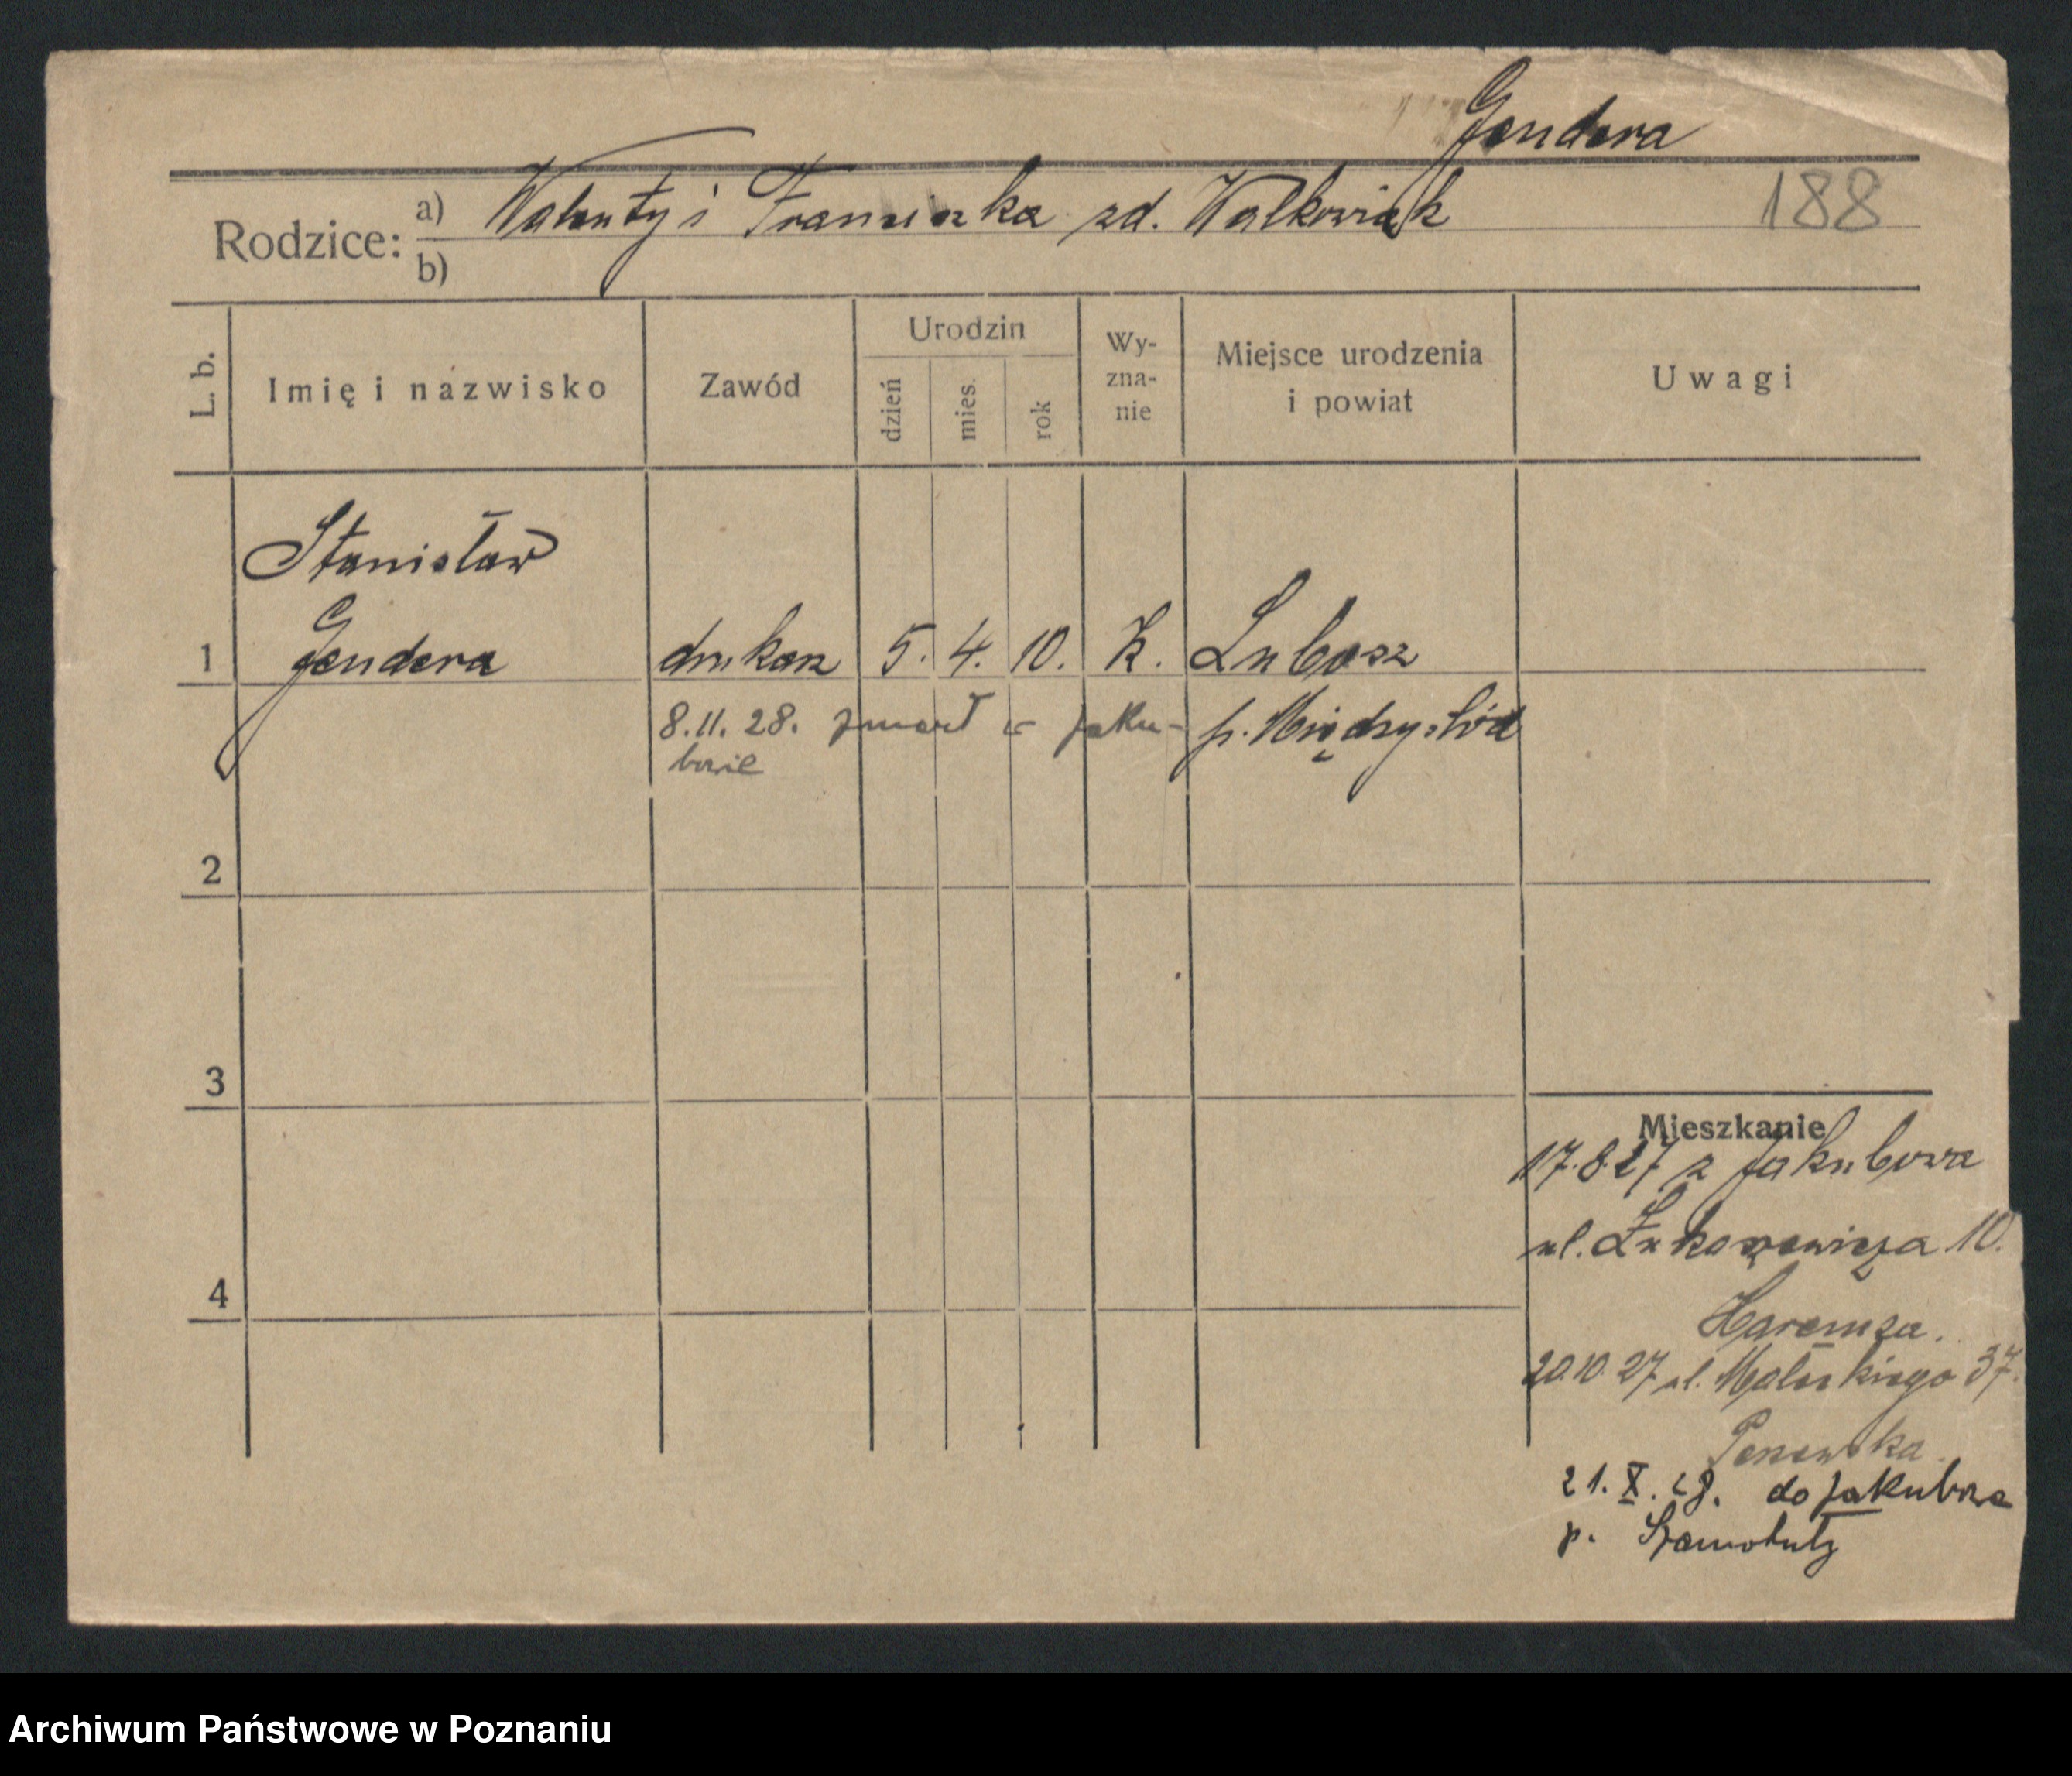 Gendera
188
Rodzice: a) Walenty i Franciszka zd. Walkowiak
b)
L. b.
Imię i nazwisko
Zawód
Urodzin
dzień
mies.
rok
Wy-
zna-
nie
Miejsce urodzenia
i powiat
Uwagi
Stanisław
1 Gendera drukarz 5. 4. 10. K. Lubosz
8.11.28. zmarł w Jaku- p. Międzychód
bowie
2
3
4
Mieszkanie
17.8.27 z Jakubowa
ul. Łukaszewicza 10.
Haremza.
20.10.27 ul. Małeckiego 37.
21.X.28. do Jakubowa
p. Szamotuły
Archiwum Państwowe w Poznaniu